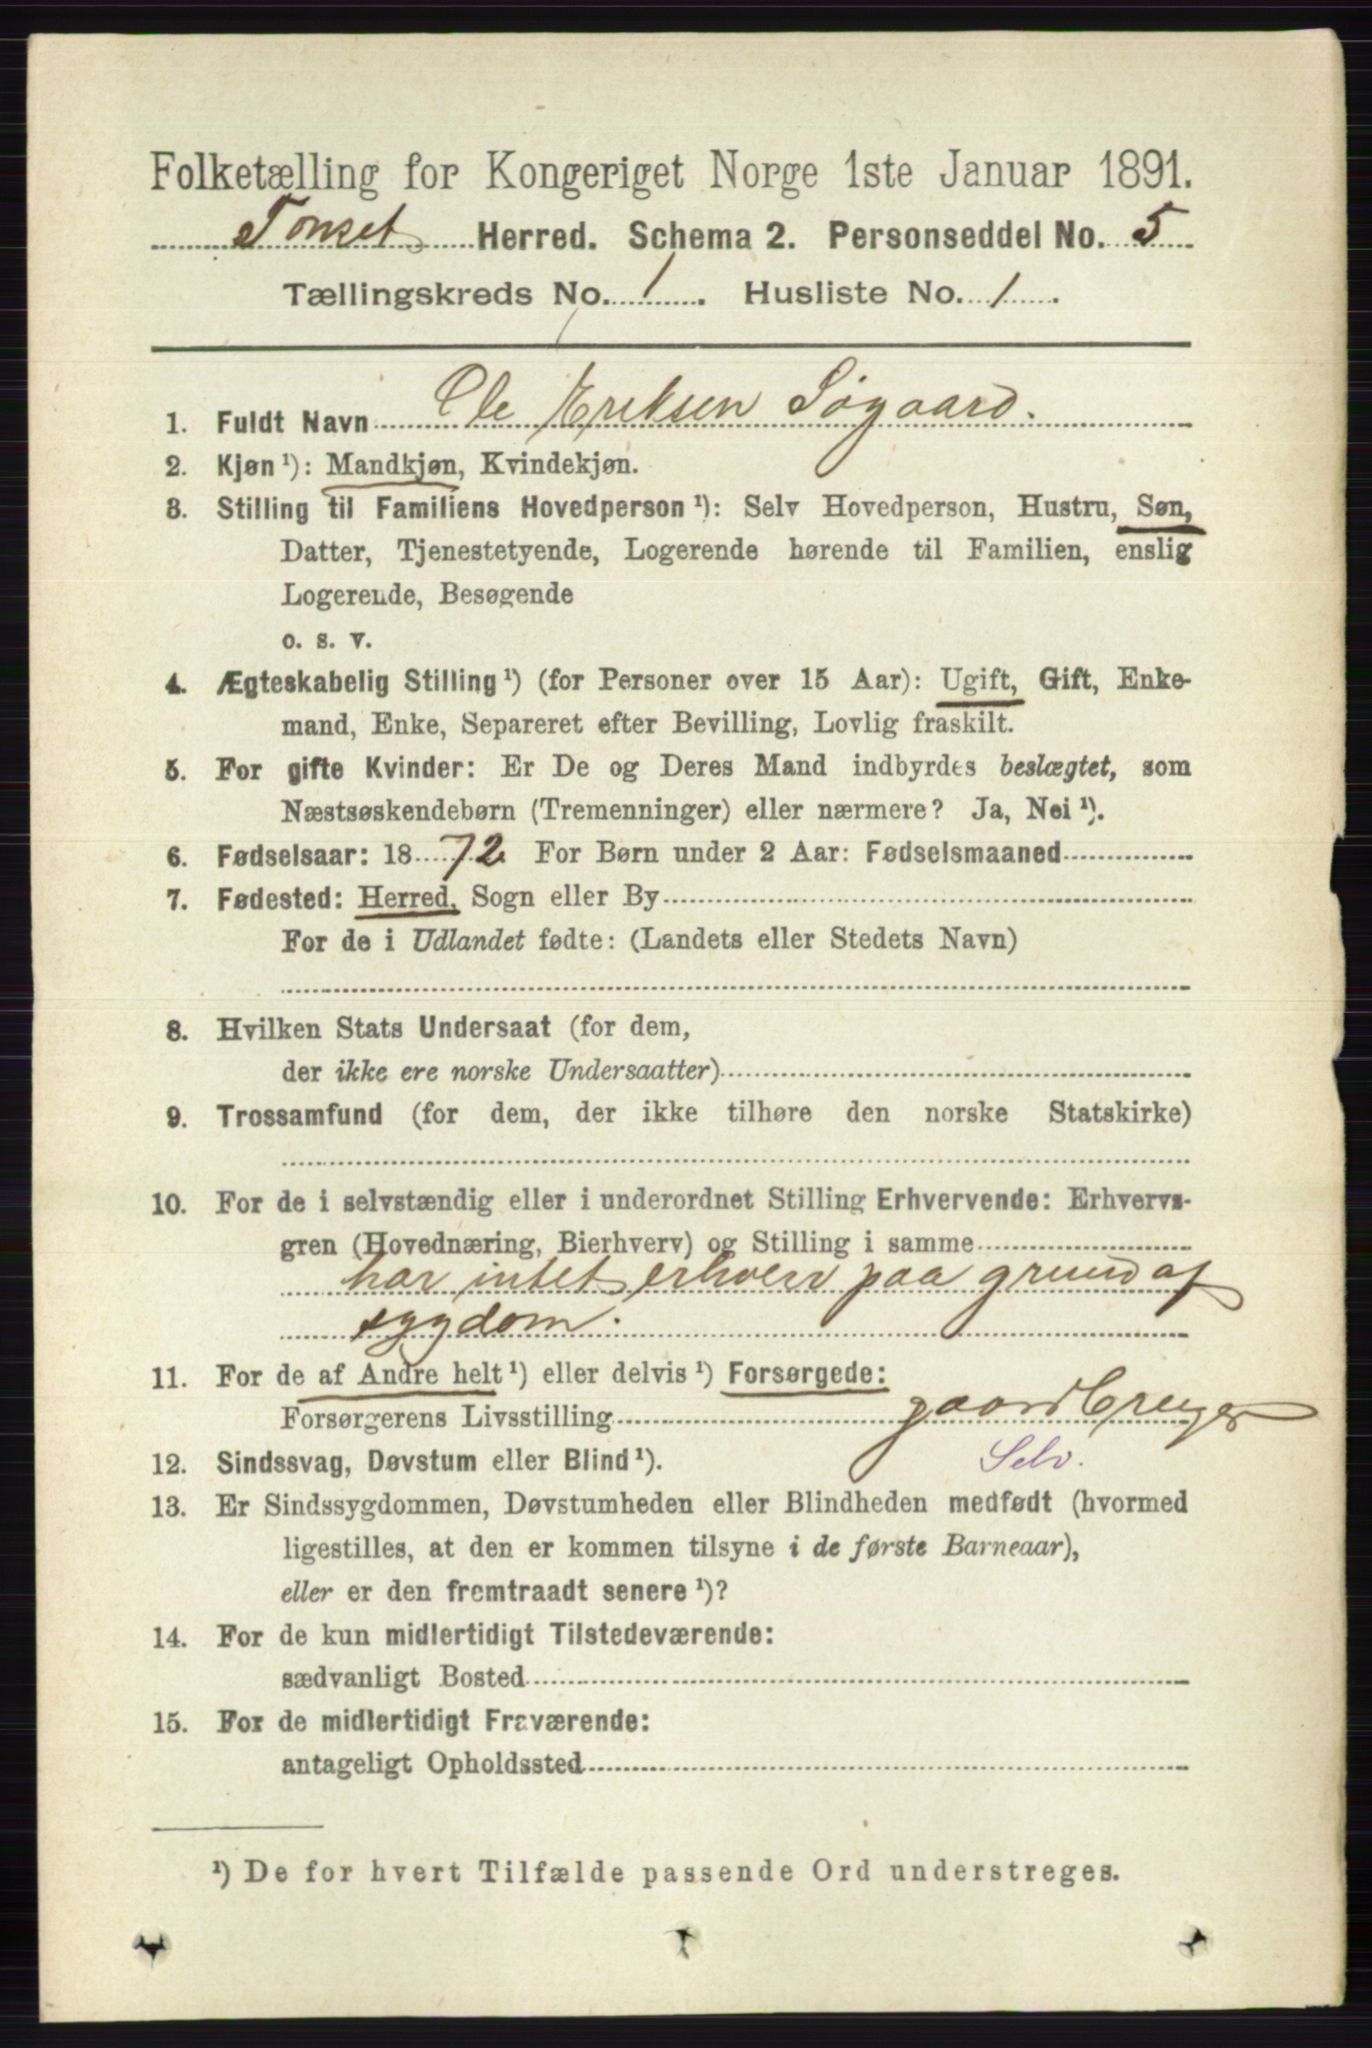 Folketælling for Kongeriget Norge 1ste Januar 1891.
Tønset Herred. Schema 2. Personseddel No. 5
Tællingskreds No. 1. Husliste No. 1.
1. Fuldt Navn Ole Eriksen Søgaard.
2. Kjøn¹): Mandkjøn, Kvindekjøn.
3. Stilling til Familiens Hovedperson¹): Selv Hovedperson, Hustru, Søn,
Datter, Tjenestetyende, Logerende hørende til Familien, enslig
Logerende, Besøgende
o. s. v.
4. Ægteskabelig Stilling¹) (for Personer over 15 Aar): Ugift, Gift, Enke-
mand, Enke, Separeret efter Bevilling, Lovlig fraskilt.
5. For gifte Kvinder: Er De og Deres Mand indbyrdes beslægtet, som
Næstsøskendebørn (Tremenninger) eller nærmere? Ja, Nei¹).
6. Fødselsaar: 1872. For Børn under 2 Aar: Fødselsmaaned
7. Fødested: Herred, Sogn eller By
For de i Udlandet fødte: (Landets eller Stedets Navn)
8. Hvilken Stats Undersaat (for dem,
der ikke ere norske Undersaatter)
9. Trossamfund (for dem, der ikke tilhøre den norske Statskirke)
10. For de i selvstændig eller i underordnet Stilling Erhvervende: Erhvervs-
gren (Hovednæring, Bierhverv) og Stilling i samme
har intet erhverv paa grund af
sygdom.
11. For de af Andre helt¹) eller delvis¹) Forsørgede:
Forsørgerens Livsstilling gaardbruger
12. Sindssvag, Døvstum eller Blind¹). Selv.
13. Er Sindssygdommen, Døvstumheden eller Blindheden medfødt (hvormed
ligestilles, at den er kommen tilsyne i de første Barneaar),
eller er den fremtraadt senere¹)?
14. For de kun midlertidigt Tilstedeværende:
sædvanligt Bosted
15. For de midlertidigt Fraværende:
antageligt Opholdssted
¹) De for hvert Tilfælde passende Ord understreges.